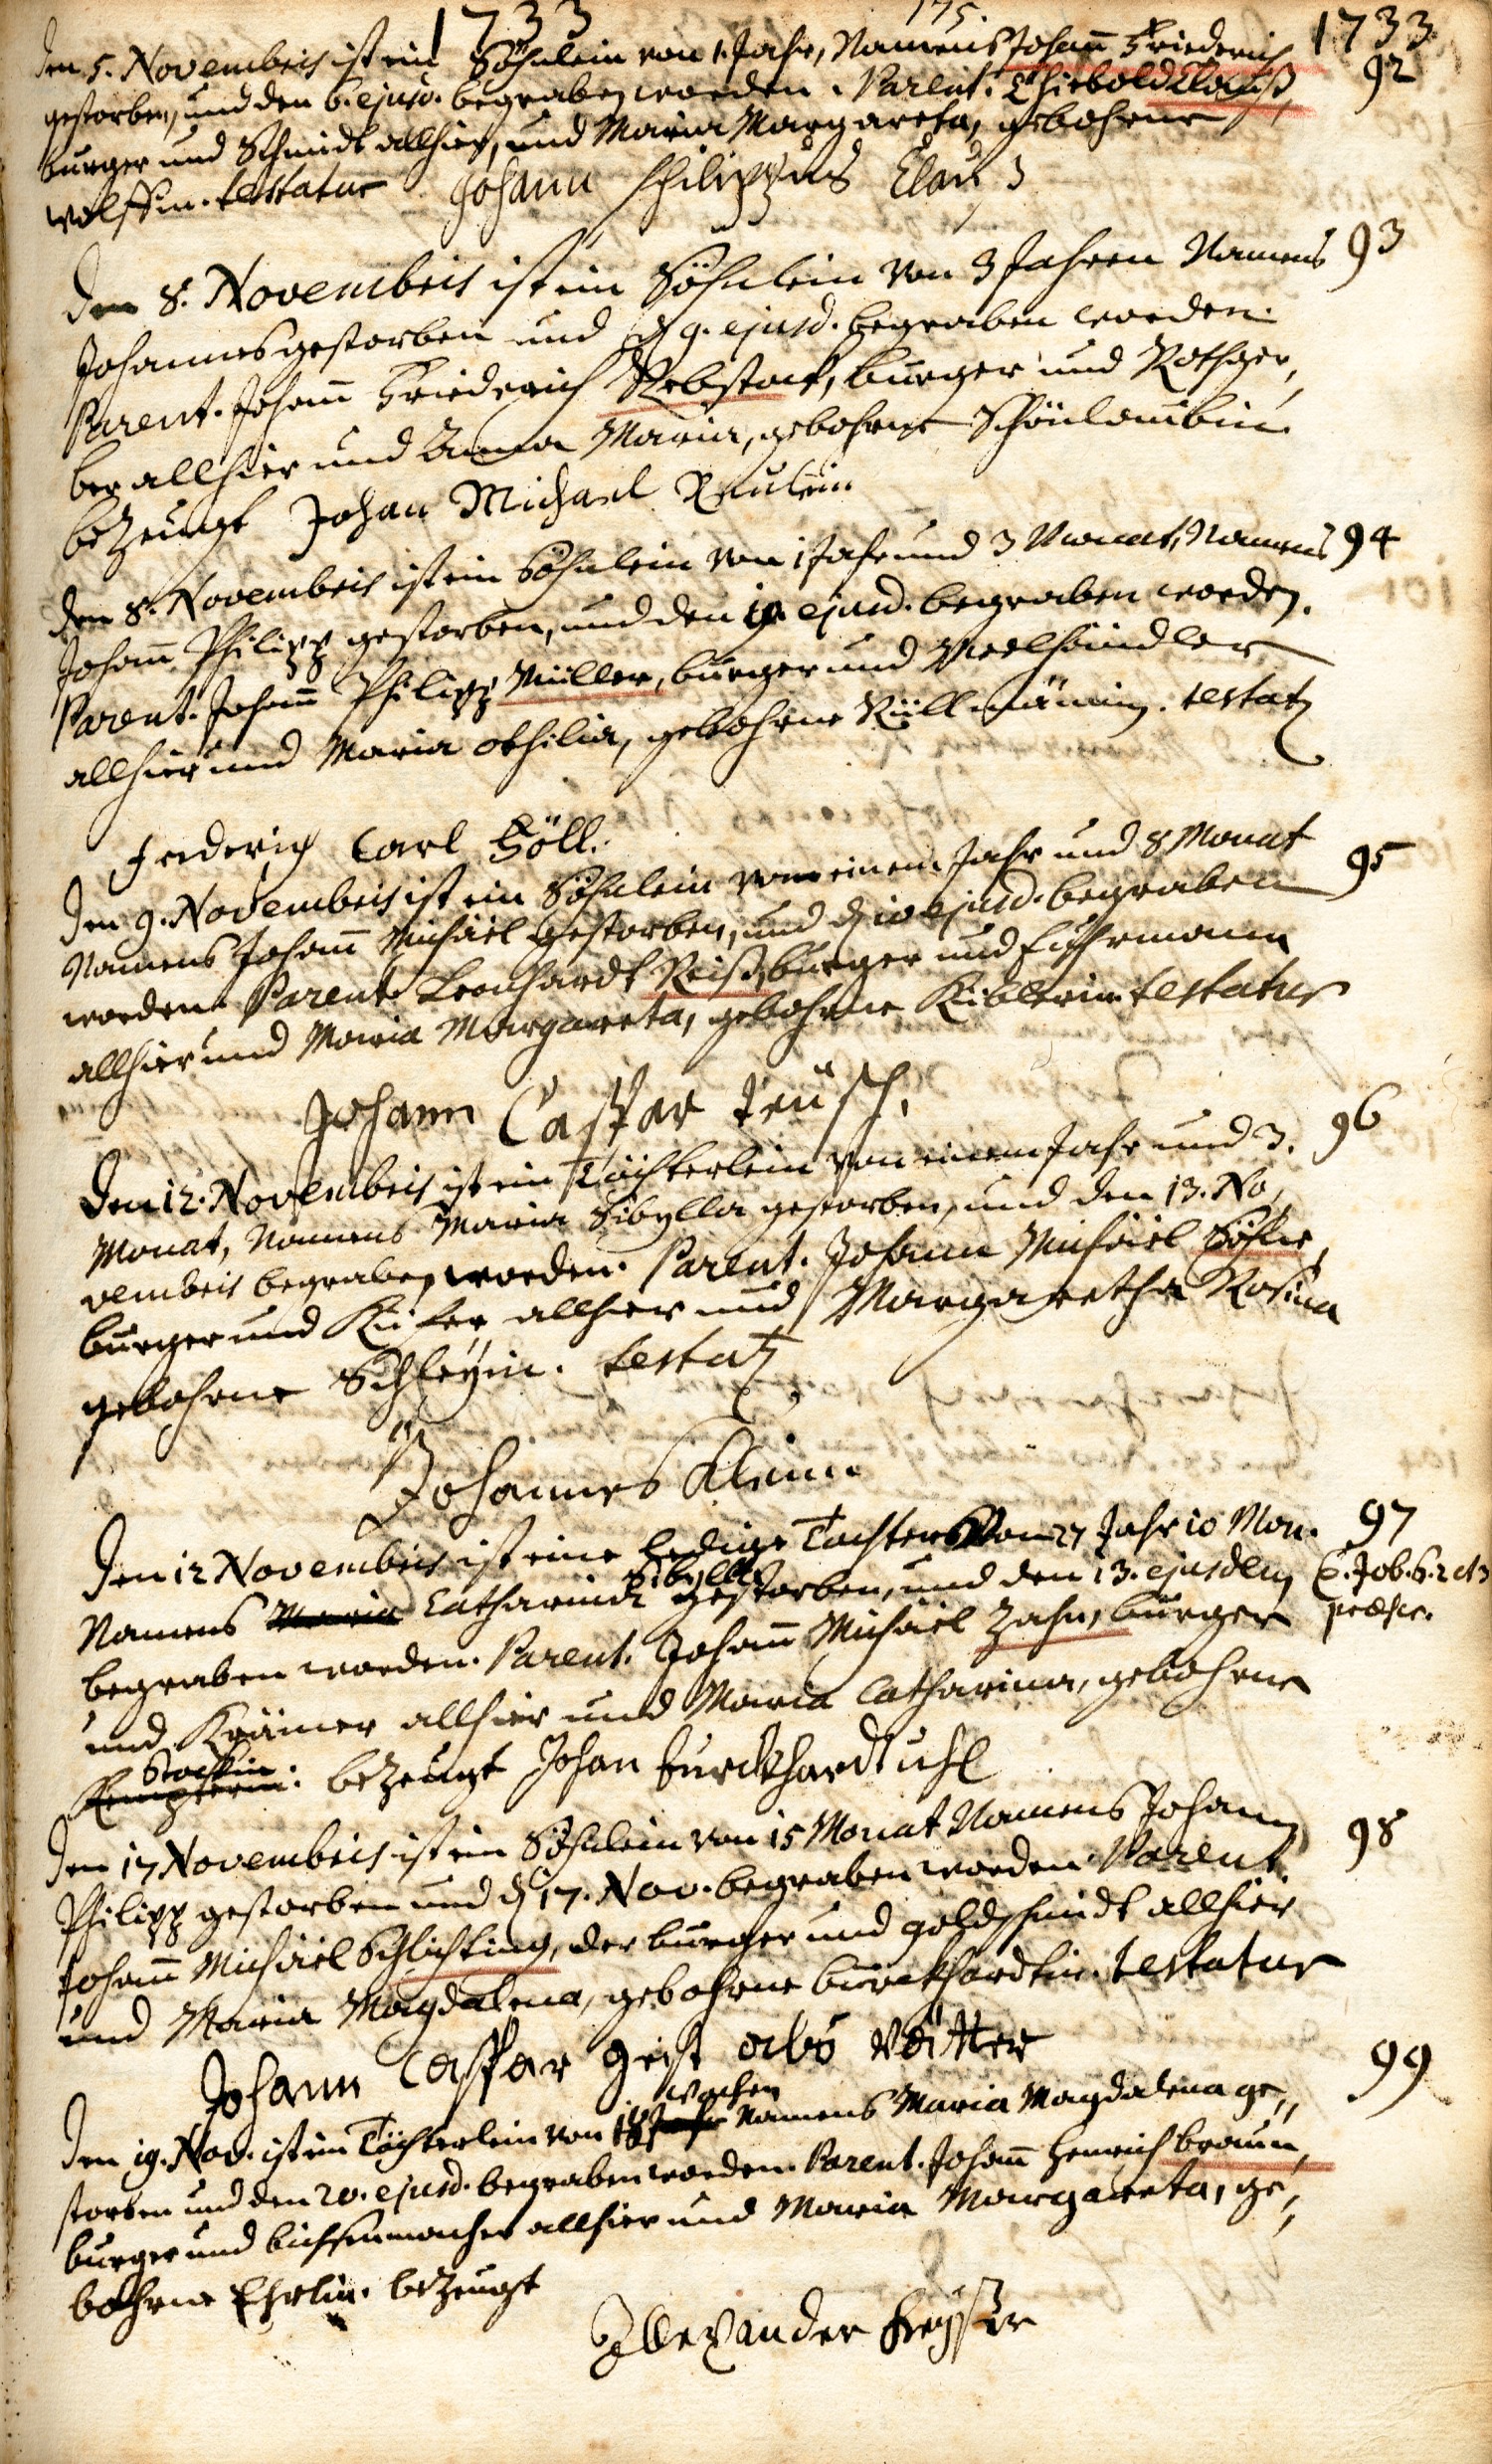 1733 175. 1733
den 5. Novembris ist ein Söhnlein von 1. Jahr, Namens Johann Friederich 92
gestorben, und den 6. ejusd. begraben worden. Parent. Thiebold Clauß,
burger und Schmidt allhier, und Maria Margareta, gebohrne
Wolffin. testatur Johann Philippus Clauß
den 8. Novembris ist ein Söhnlein von 3 Jahren Namens 93
Johannes gestorben und d 9. ejusd. begraben worden.
Parent. Johann Friederich Rebstock, burger und Rothger,
ber allhier und Anna Maria, gebohrne Schönlaubin
bezeugt Johan Michael
den 8. Novembris ist ein Söhnlein von 1 Jahr und 3 Monat, Namens 94
Johann Philipp gestorben, und den 10 ejusd. begraben worden.
Parent. Johann Philipp Müller, burger und Meelhändler
allhier und Maria Othilia, gebohrne Küllmännin. testat
Frederich Carl Höll.
den 9. Novembris ist ein Söhnlein von einem Jahr und 8 Monat 95
Namens Johann Michäel gestorben, und d 10 ejusd. begraben
worden. Parent. Leonhardt Reiß, burger und Fuhrmann
allhier und Maria Margareta, gebohrne Kiblerin. testatur
Johann Casspar Teüsch.
Den 12. Novembris ist ein Töchterlein von einem Jahr und 3. 96
Monat, Namens Maria Sibylla gestorben, und den 13. No,
vembris begraben worden. Parent. Johann Michäel Höhn,
burger und Kiefer allhier und Margaretha Rosina
gebohrne Schleyin. testat
Johannes Klein
Den 12 Novembris ist eine ledige Tochter Von 27 Jahr 10 Mon. 97
Sibylla
Namens Maria Catharina gestorben, und den 13. ejusdem C. Job. 6. 2 et 3
begraben worden. Parent. Johann Michäel Zahn, burger
und Krämer allhier und Maria Catharina, gebohrne
Stockin
bezeugt Johan burckhardt Uhl
den 17 Novembris ist ein Söhnlein von 15 Monat Namens Johann 98
Philipp gestorben und d 17. Nov. begraben worden. Parent.
Johann Michäel Schlichting, der burger und goldschmidt allhier
und Maria Magdalena, gebohrne burckhardtin. testatur
Johann Casspar Geist als Vätter
Wochen 99
den 19. Nov. ist ein Töchterlein von 18 Jahr Namens Maria Magdalena ge,,
storben und den 20. ejusd. begraben worden. Parent. Johann Henrich braun,
burger und büchsenmacher allhier und Maria Margareta, ge,,
bohrne Ehrlin. bezeugt
Allexander